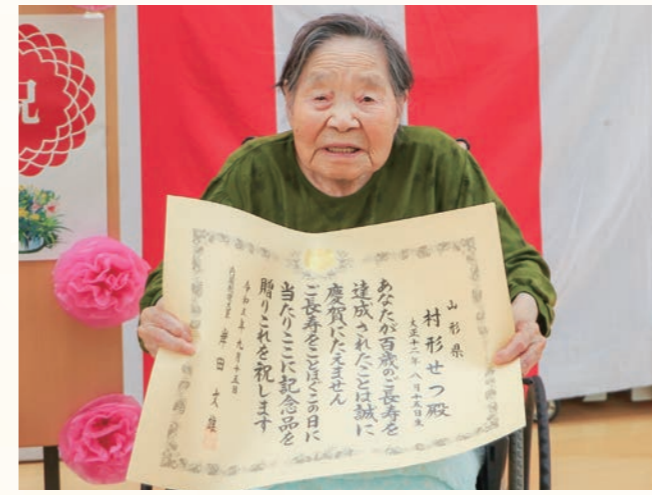 祝
山形県
村形せつ殿
大正十二年八月十五日生
あなたが百歳のご長寿を
達成されたことは誠に
慶賀にたえません
ご長寿をことほぐこの日に
当たりここに記念品を
贈りこれを祝します
令和五年九月十五日
内閣総理大臣 岸田文雄